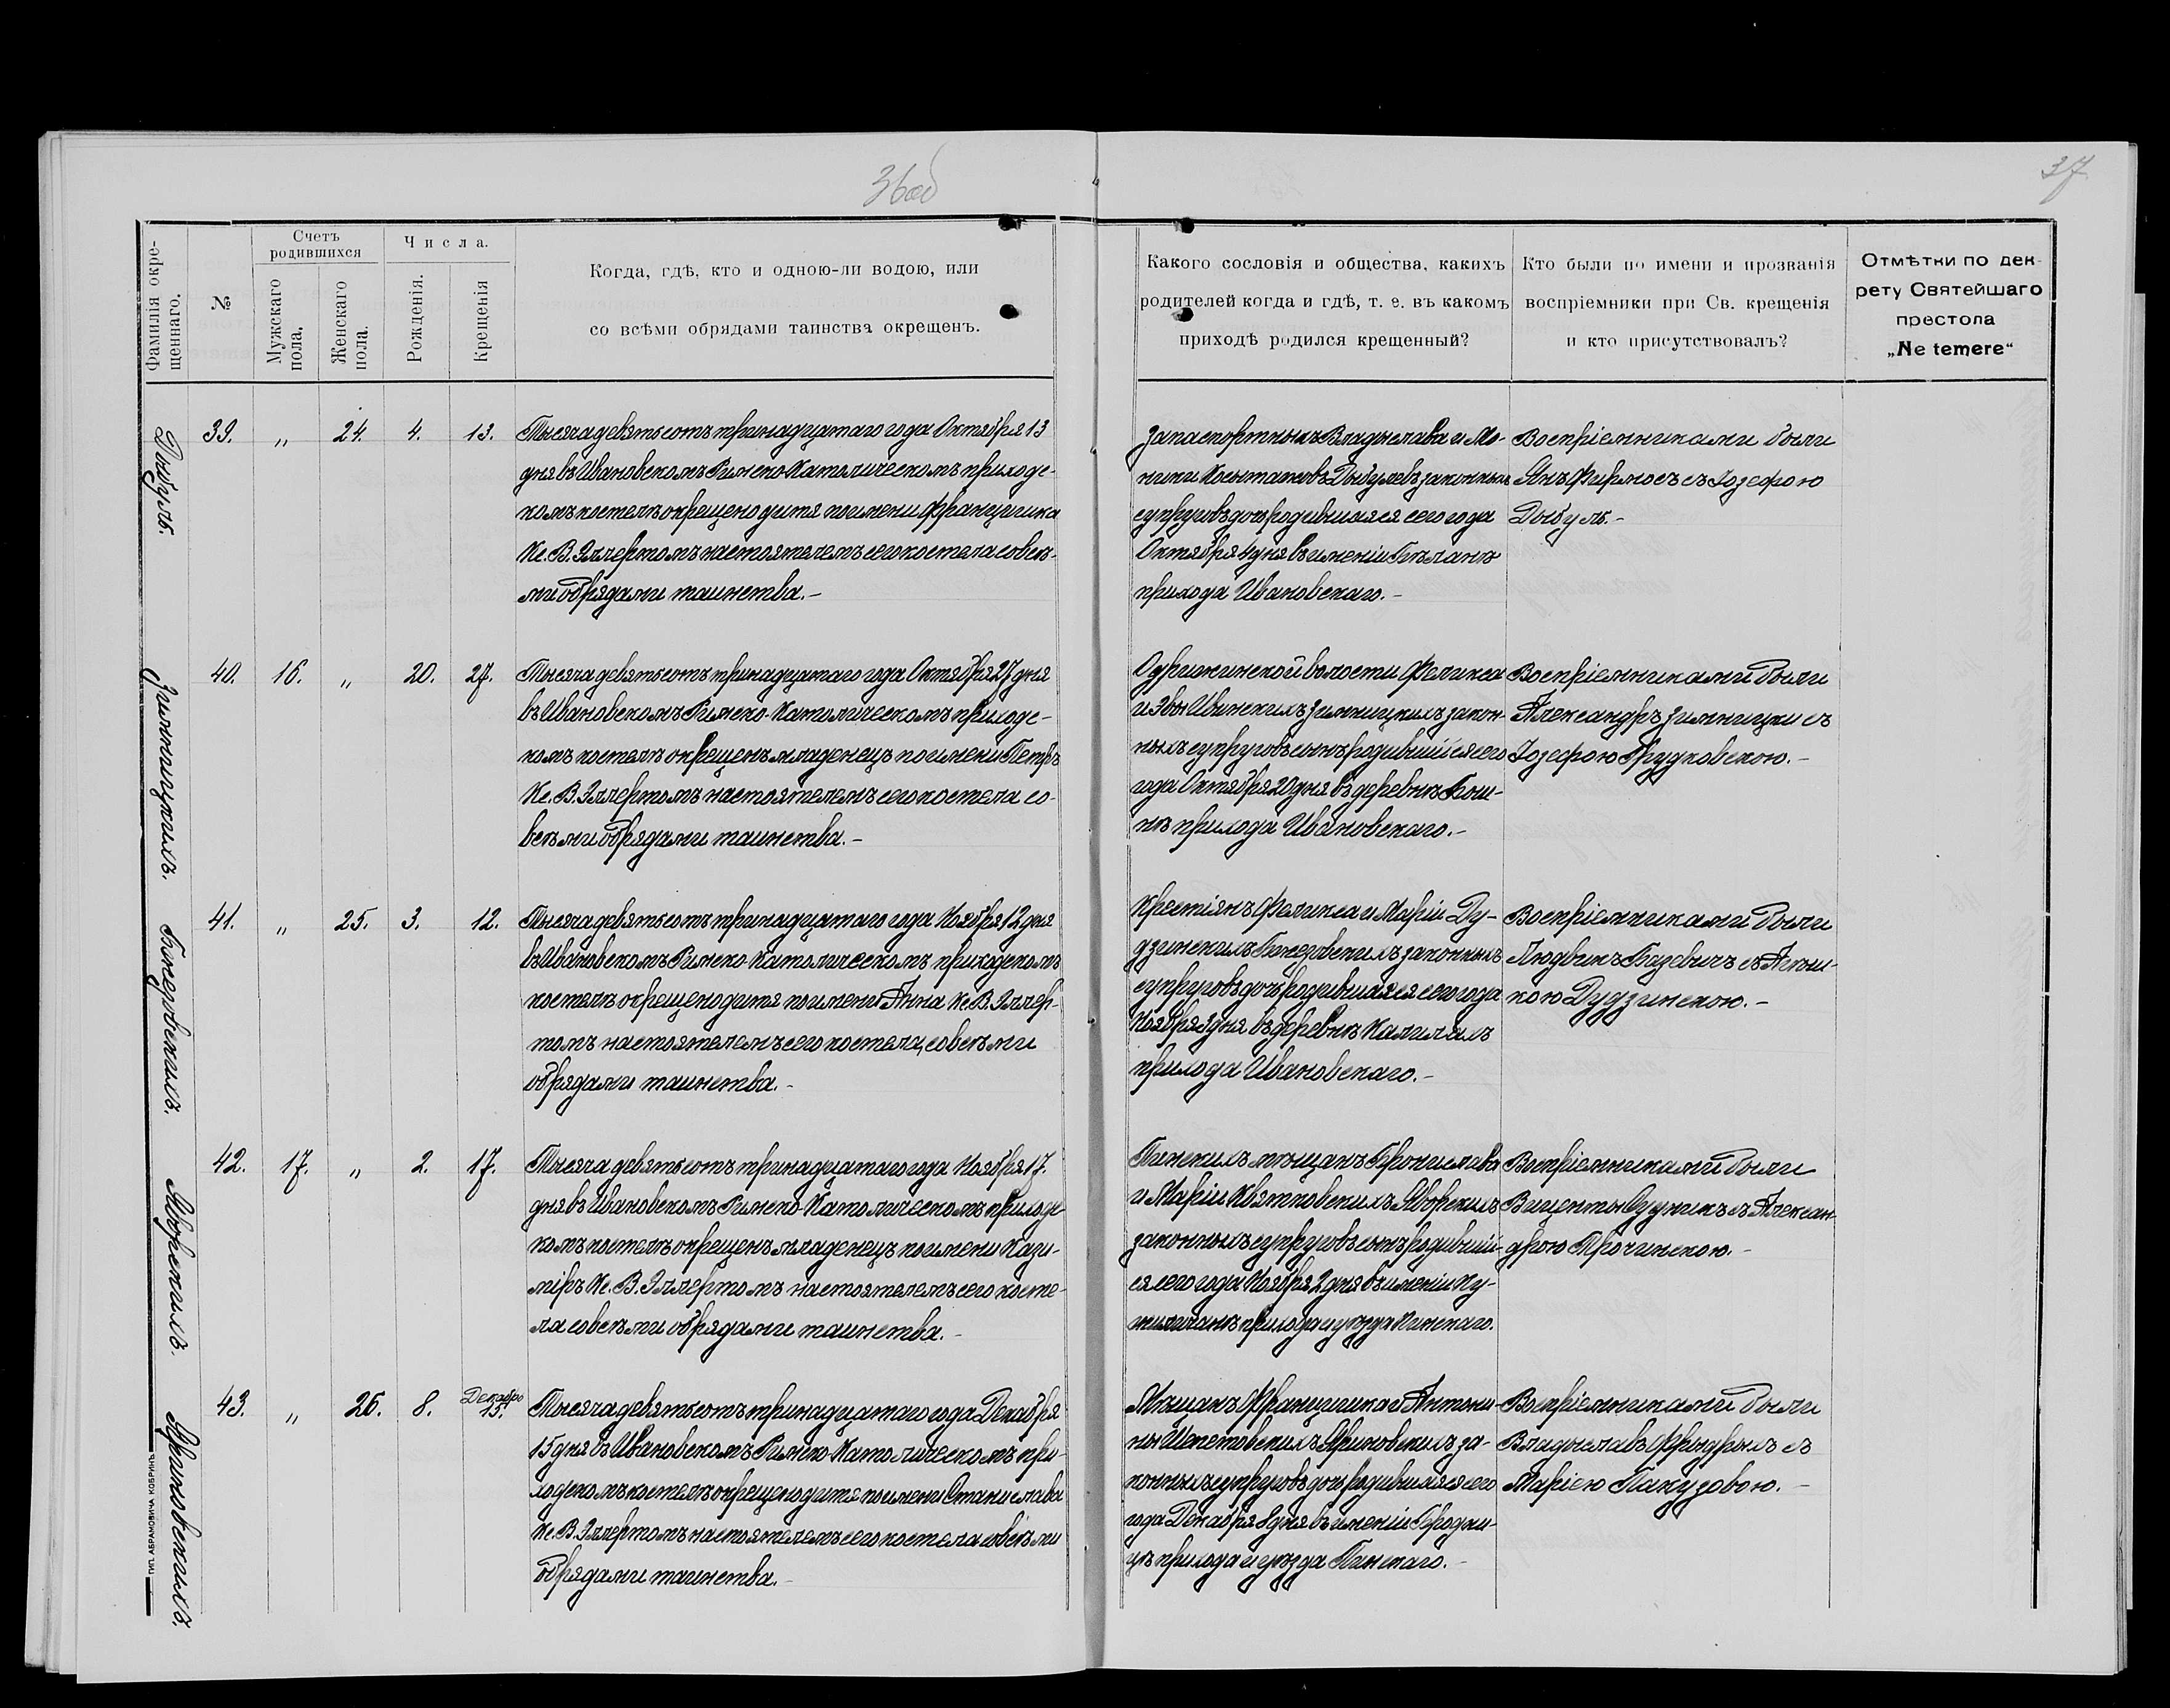 36об
37
Фамилія окре-
щеннаго.
№
Счетъ
родившихся
Мужскаго
пола.
Женскаго
пола.
Числа.
Рожденія.
Крещенія
Когда, гдѣ, кто и одною-ли водою, или
со всѣми обрядами таинства окрещенъ.
Какого сословія и общества, какихъ
родителей когда и гдѣ, т. е. въ какомъ
приходѣ родился крещенный?
Кто были по имени и прозванія
воспріемники при Св. крещенія
и кто присутствовалъ?
Отмѣтки по дек-
рету Святейшаго
престола
„Ne temere“
Дыбуль.
39. „ 24. 4. 13.
Тысяча девятьсотъ тринадцатаго года Октября 13
дня въ Ивановскомъ Римско-Католическомъ приходс-
комъ костелѣ окрещено дитя по имени Францишка
Кс. В. Эллертомъ настоятелемъ сего костела со всѣ-
ми обрядами таинства.-
Запаспортныхъ Владыслава и Мо-
ники Дыбулевъ законныхъ
супруговъ дочь родившаяся сего года
Октября 4 дня въ имѣніи
прихода Ивановскаго.-
Воспріемниками были
Янъ Фирмосъ съ Іозефою
Дыбуль.-
Зимницкихъ.
40. 16. „ 20. 27.
Тысяча девятьсотъ тринадцатаго года Октября 27 дня
въ Ивановскомъ Римско-Католическомъ приходс-
комъ костелѣ окрещенъ младенецъ по имени Петръ
Кс. В. Эллертомъ настоятелемъ сего костела со-
всѣми обрядами таинства.-
Одрижинской волости Феликса
и Эвы Ивинскихъ Зимницкихъ закон-
ныхъ супруговъ сынъ родившійся сего
года Октября 20 дня въ деревнѣ
прихода Ивановскаго.-
Воспріемниками были
Александръ Зимницки съ
Іозефою Грудковскою.-
41. „ 25. 3. 12.
Тысяча девятьсотъ тринадцатаго года Ноября 12 дня
въ Ивановскомъ Римско-Католическомъ приходскомъ
костелѣ окрещено дитя по имени Анна Кс. В. Эллер-
томъ настоятелемъ сего костела, со всѣми
обрядами таинства.-
Крестіянъ Феликса и Маріи Ду-
дзинскихъ законныхъ
супруговъ дочь родившаяся сего года
Ноября 3 дня въ деревнѣ
прихода Ивановскаго.-
Воспріемниками были
Людвикъ Базевичъ съ
Дудзинскою.-
Яворскихъ.
42. 17. „ 2. 17.
Тысяча девятьсотъ тринадцатаго года Ноября 17.
дня въ Ивановскомъ Римско-Католическомъ приходс
комъ костелѣ окрещенъ младенецъ по имени Кази-
міръ Кс. В. Эллертомъ настоятелемъ сего косте-
ла со всѣми обрядами таинства.-
Пинскихъ мѣщанъ Бронислава
и Маріи Квятковскихъ Яворскихъ
законныхъ супруговъ сынъ родившій-
ся сего года Ноября 2 дня въ имѣніи
прихода и уѣзда Пинскаго.
Воспріемниками были
Виценты Судникъ съ Алексан-
дрою Прочинскою.-
Яриновскихъ.
43. „ 26. 8. Декабря 15.
Тысяча девятьсотъ тринадцатаго года Декабря
15 дня въ Ивановскомъ Римско-Католическомъ при-
ходскомъ костелѣ окрещено дитя по имени Станислава
Кс. В. Эллертомъ настоятелемъ сего костела со всѣми
обрядами таинства.-
Мѣщанъ Францишка и Антони-
ны Шепетовскихъ Яриновскихъ за-
конныхъ супруговъ дочь родившаяся сего
года Декабря 8 дня въ имѣніи Городи-
щѣ прихода и уѣзда Пинскаго.-
Воспріемниками были
Владыславъ Фрыдрыхъ съ
Маріею Пакузовою.-
ТИП. АБРАМОВИЧА КОБРИНЪ